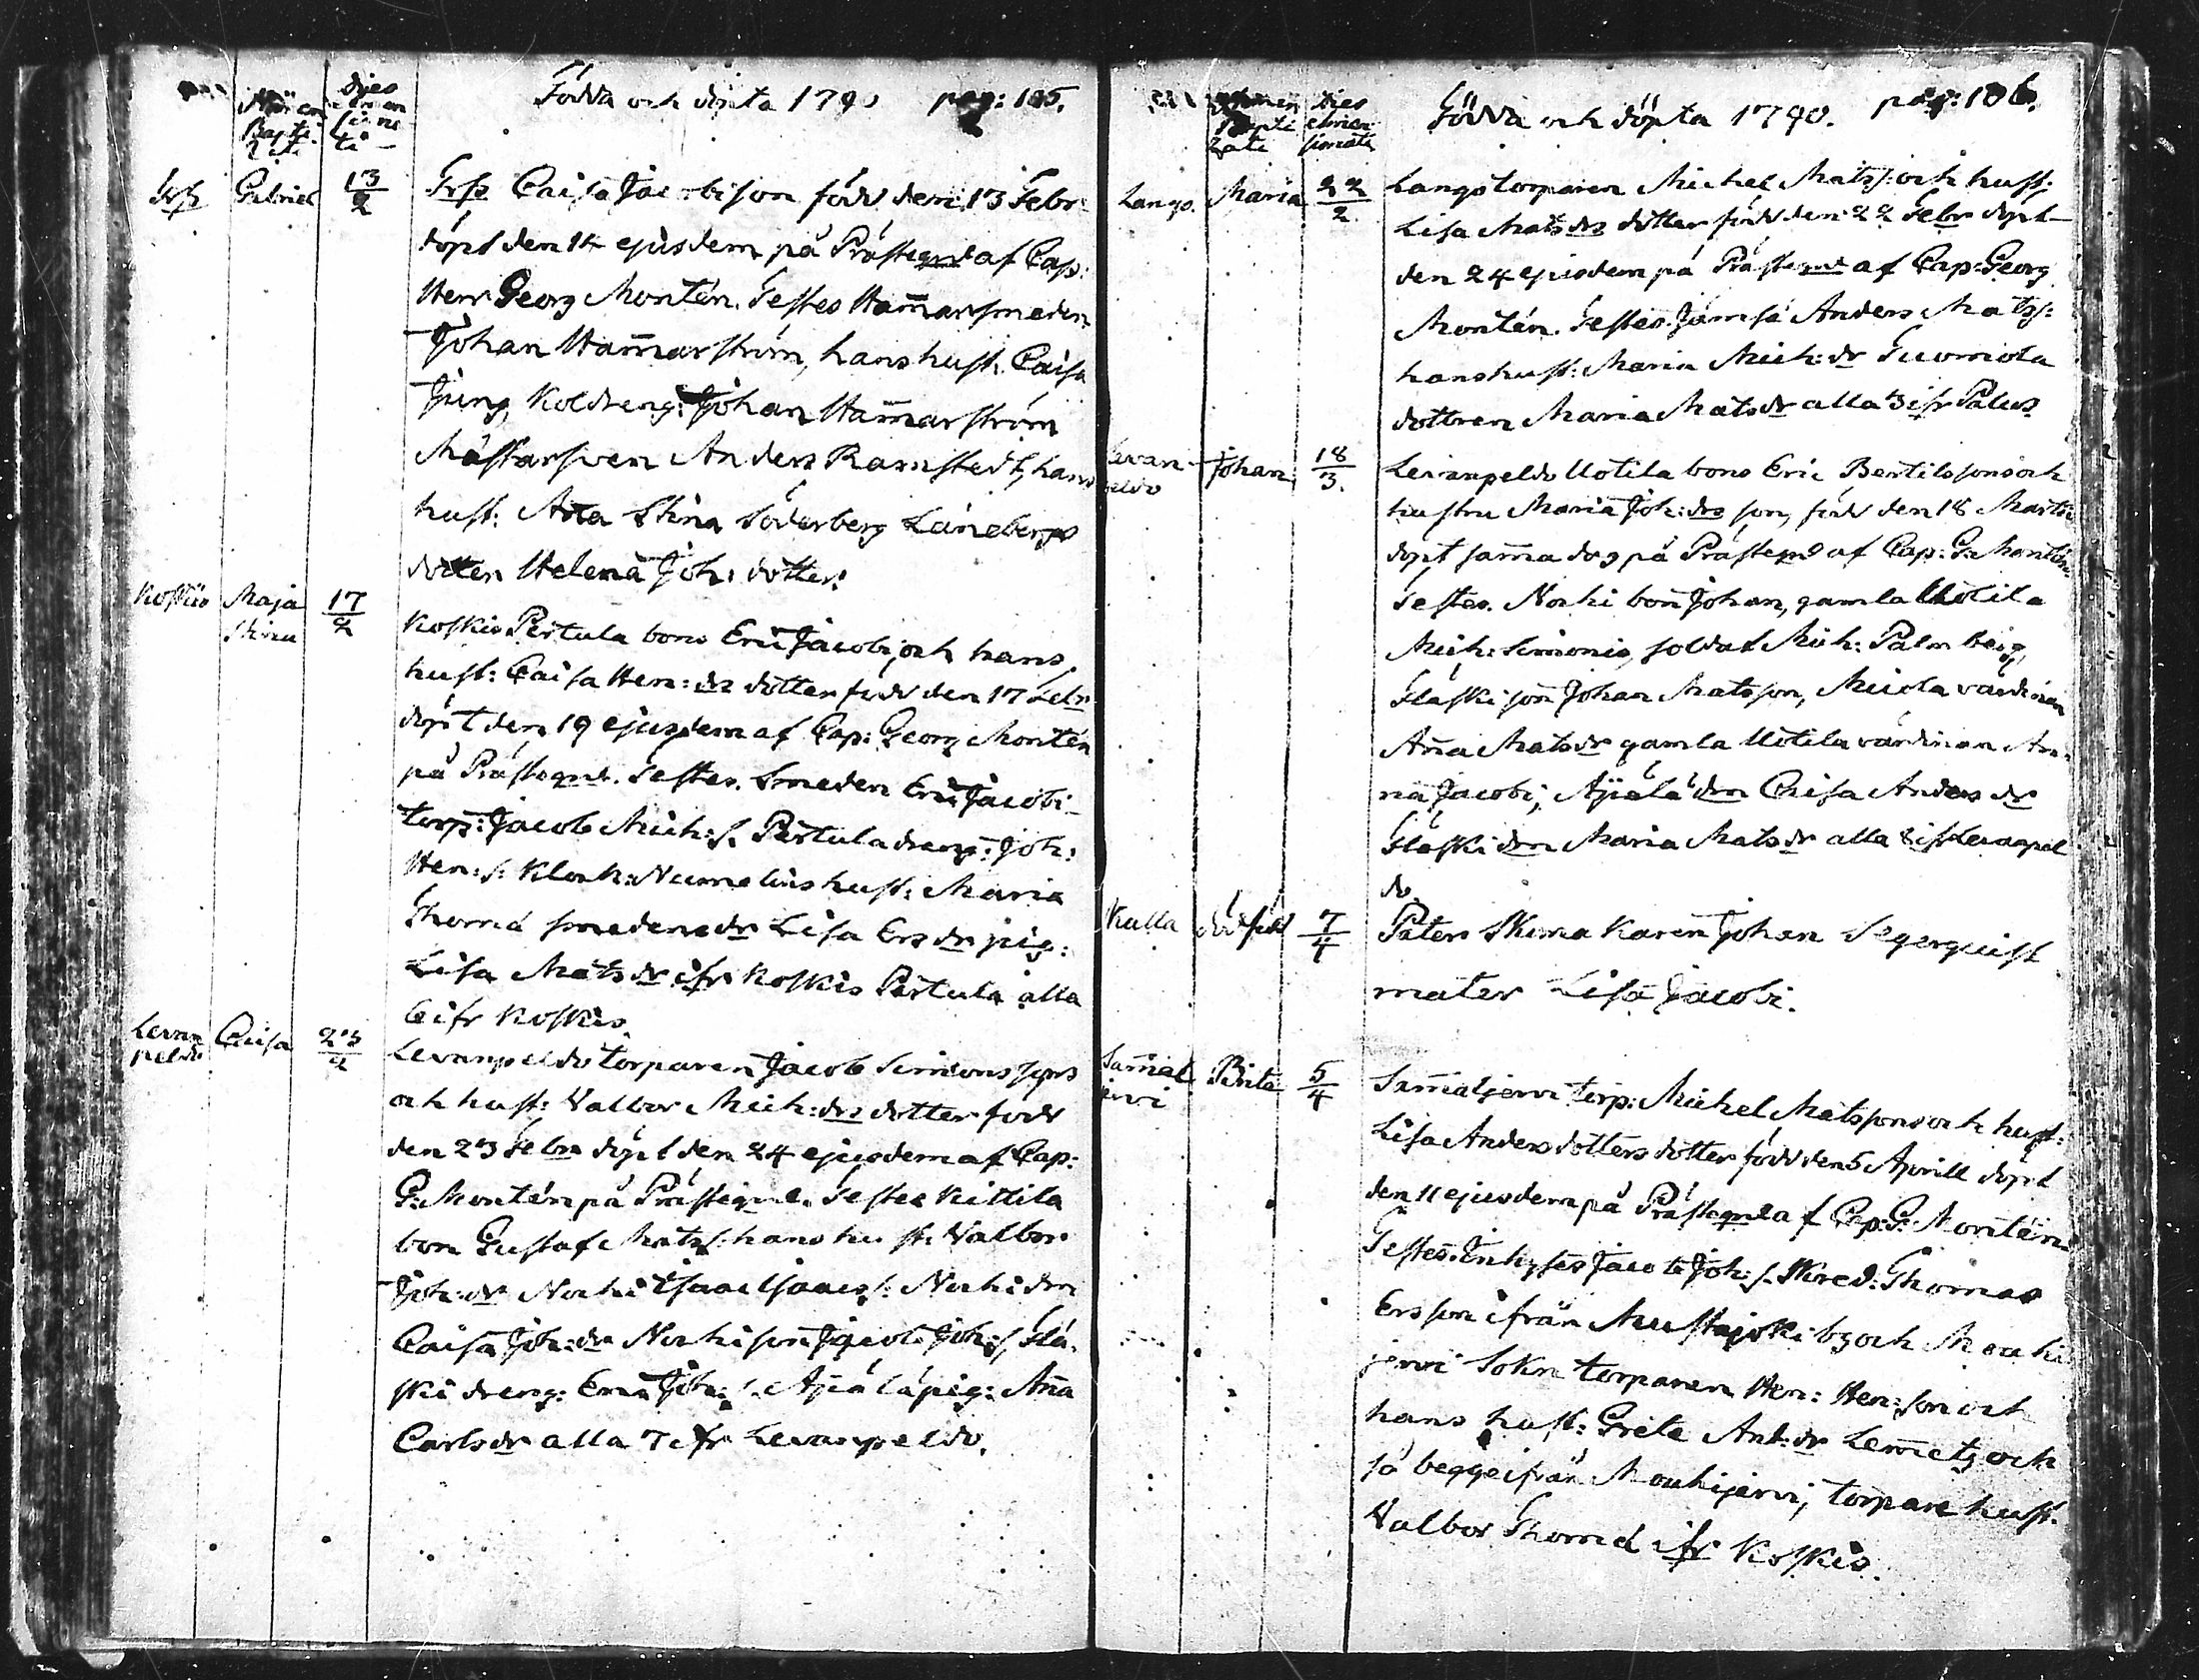 Födda och döpta 1790 pag: 105.
Nomen Baptizati
dies
Gabriel 13/2
Caisa Jacobi son född den 13 Febr:
döpt den 14 ejusdem på Prästegd af Cap:
Herr Georg Montén. Testes Ham̄arsmeden
Johan Ham̄arström, hans hust. Caisa
Jung, Koldreng: Johan Ham̄arström
Mästarsven Anders Ramstedt, hans
hust: Stina Söderberg
dotter Helena Joh: dotter.
Koskis Maja Stina 17/2
Koskis Pertula bons Eric Jacobi, och hans
hust: Caisa Hen: drs dotter född den 17 Febr
döpt den 19 ejusdem af Cap: Georg Montén
på Prästegd. Testes. Smeden Eric Jacobi
torp: Jacob Mich: s. Pertula dreng: Joh:
Hen: s. Klock: Numelins hust: Maria
Thomd smedens dr Lisa Ers dr pig:
Lisa Mats dr ifr Koskis Pertula alla
6 ifr Koskis.
Levanpeldo Caisa 23/2
Levanpeldo torparen Jacob Simons sons
och hust: Valbor Mich: drs dotter född
den 23 Febr döpt den 24 ejusdem af Cap:
G: Montén på Prästegd. Testes Kittila
bon Gustaf Mats s: hans hust: Valbor
Joh: dr Nochi Isaac Isaacs s: Nochi drn
Caisa Joh: dr Nochi son Jacob Joh: s, Flä-
ski dreng: Eric Joh: s. Äjälä pig: An̄a
Carls dr alla 7 ifr Levanpeldo.
Nomen Baptizati
dies
Födda och döpta 1790. pag: 106.
Langs. Maria 22/2
Langs torparen Michel Mats s: och hust:
Lisa Mats drs dotter född den 22 Febr döpt
den 24 ejusdem på Prästegd af Cap: Georg
Montén. Testes. Jämsä Anders Mats s:
hans hust: Maria Mich: dr Suomola
dottren Maria Mats dr alla 3 ifr Palus
Levanpeldo Johan 18/3.
Levanpeldo Uotila bons Eric Bertils sons och
hustru Maria Joh: drs son, född den 18 Martii
döpt sam̄a dag på Prästegd af Cap: G: Montén.
Testes. Nochi bon̄ Johan, gamla Uotila
Mich: Simonis, soldat Mich: Palmberg,
Fläski son̄ Johan Matsson, Miola värdinan
An̄a Mats dr gamla Uotila värdinan An-
na Jacobi, Äjälä drn Caisa Anders dr
Fläski drn Maria Mats dr alla 8 ifr Levanpel
do.
Kulla dödfödd 7/4
Pater Skomakaren̄ Johan Segerquist
mater Lisa Jacobi.
Sam̄aljervi Brita 5/4
Sam̄aljervi torp: Michel Matssons och hust:
Lisa Andersdotters dotter född den 5 Aprill döpt
den 11 ejusdem på Prästegd af Cap: G: Montén.
Testes. Inhyses Jacob Joh: s. Skred: Thomas
Ersson ifrån Mustajoki by och Mouhi
jervi Sokn torparen Hen: Hen: son och
hans hust: Greta And: dr och
så begge ifrån Mouhijervi, torpare hust.
Valbor Thomd ifr Koskis.